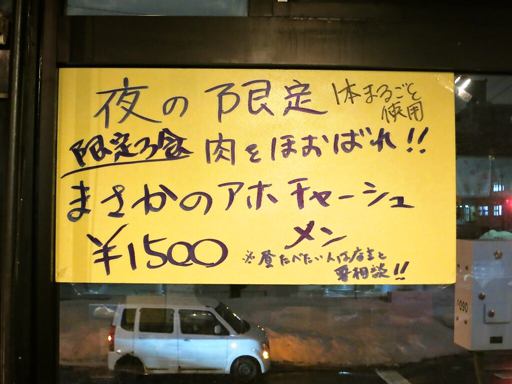 夜の限定 1本まるごと
使用
限定3食 肉をほおばれ!!
まさかのアホチャーシュー
メン
¥1500
※昼たべたい人は店主と
要相談!!